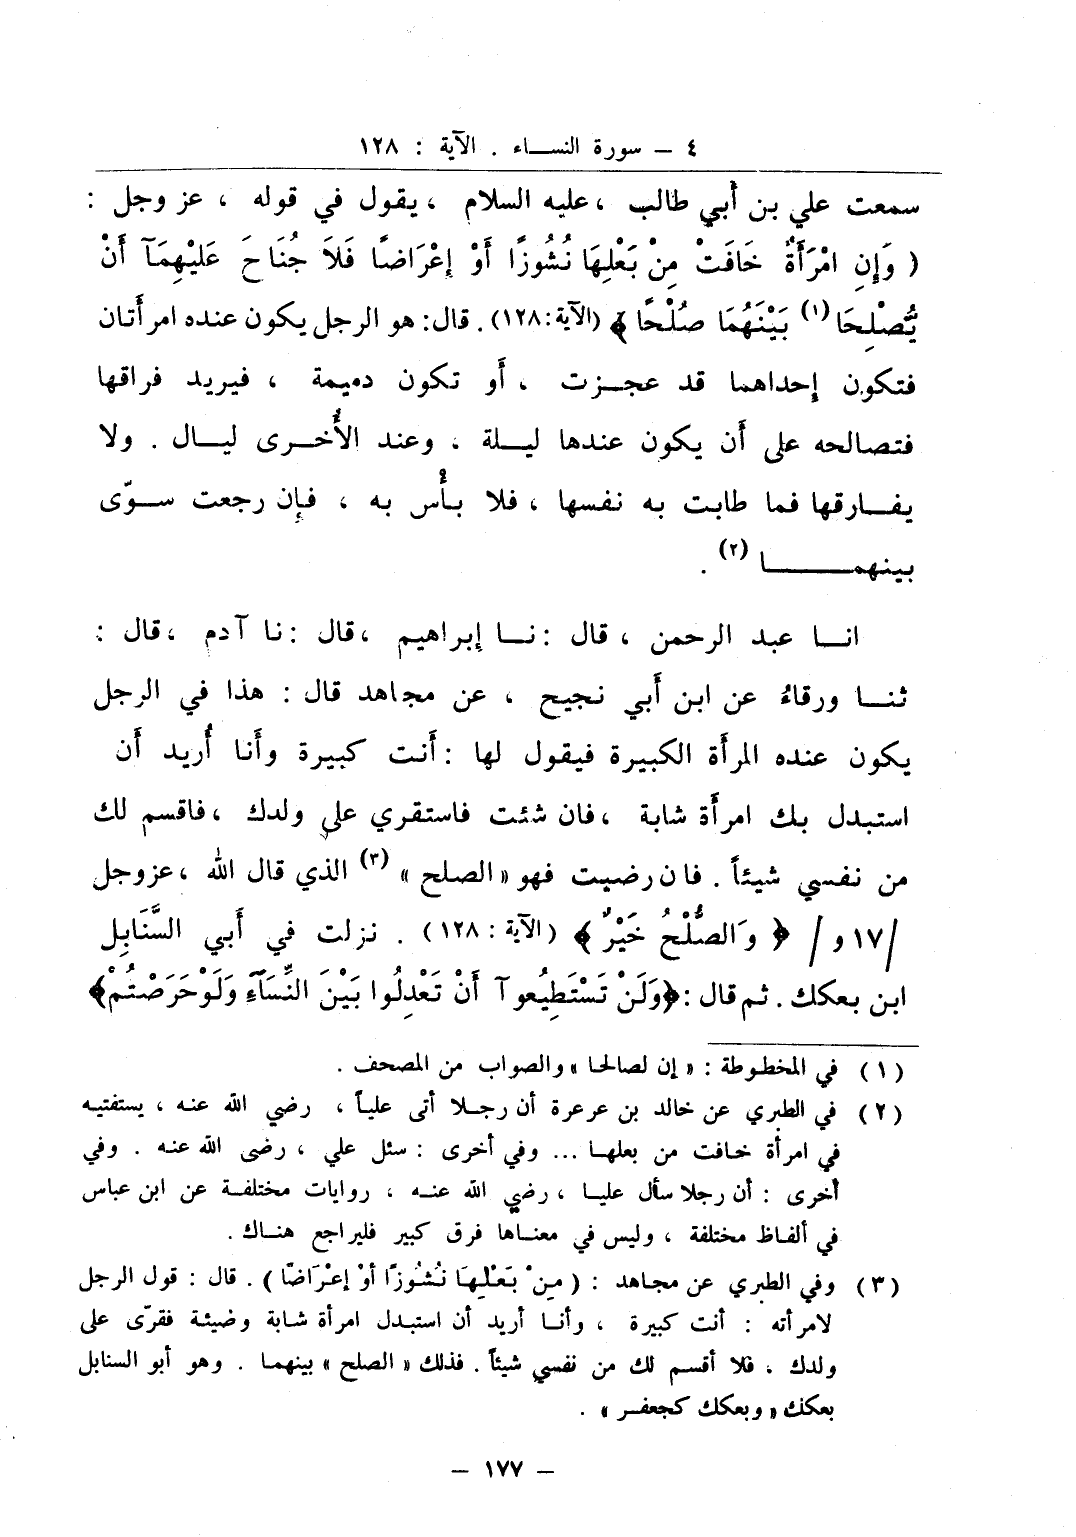 ٤ – سورة النساء . الآية : ١٢٨
سمعت علي بن أبي طالب ، عليه السلام ، يقول في قوله ، عز وجل :
( وَإِنِ امْرَأَةٌ خَافَتْ مِنْ بَعْلِهَا نُشُوزًا أَوْ إِعْرَاضًا فَلَا جُنَاحَ عَلَيْهِمَآ أَنْ
يُّصْلِحَا (١) بَيْنَهُمَا صُلْحًا ﴾ (الآية : ١٢٨) . قال : هو الرجل يكون عنده امرأتان
فتكون إحداهما قد عجزت ، أو تكون دميمة ، فيريد فراقها
فتصالحه على أن يكون عندها ليلة ، وعند الأُخرى ليال . ولا
يفارقها فما طابت به نفسها ، فلا بأْس به ، فإن رجعت سوّى
بينهما (٢) .
انا عبد الرحمن ، قال : نا إبراهيم ، قال : نا آدم ، قال :
ثنا ورقاءُ عن ابن أبي نجيح ، عن مجاهد قال : هذا في الرجل
يكون عنده المرأة الكبيرة فيقول لها : أنت كبيرة وأنا أُريد أن
استبدل بك امرأة شابة ، فان شئت فاستقري علي ولدك ، فاقسم لك
من نفسي شيئاً . فان رضيت فهو « الصلح » (٣) الذي قال الله ، عزوجل
/١٧ و/ ﴿ وَالصُّلْحُ خَيْرٌ ﴾ (الآية : ١٢٨) . نزلت في أبي السَّنَابِل
ابن بعكك . ثم قال : ﴿وَلَنْ تَسْتَطِيعُوآ أَنْ تَعْدِلُوا بَيْنَ النِّسَآءِ وَلَوْ حَرَصْتُمْ﴾
(١) في المخطوطة : « إن لصالحا » والصواب من المصحف .
(٢) في الطبري عن خالد بن عرعرة أن رجلا أتى علياً ، رضي الله عنه ، يستفتيه
في امرأة خافت من بعلها ... وفي أخرى : سئل علي ، رضى الله عنه . وفي
أخرى : أن رجلا سأل عليا ، رضي الله عنه ، روايات مختلفة عن ابن عباس
في ألفاظ مختلفة ، وليس في معناها فرق كبير فليراجع هناك .
(٣) وفي الطبري عن مجاهد : ( مِنْ بَعْلِهَا نُشُوزًا أَوْ إعْرَاضًا ) . قال : قول الرجل
لامرأته : أنت كبيرة ، وأنا أريد أن استبدل امرأة شابة وضيئة فقرّى على
ولدك ، فلا أقسم لك من نفسي شيئاً . فذلك « الصلح » بينهما . وهو أبو السنابل
بعكك « وبعكك كجعفر » .
– ١٧٧ –